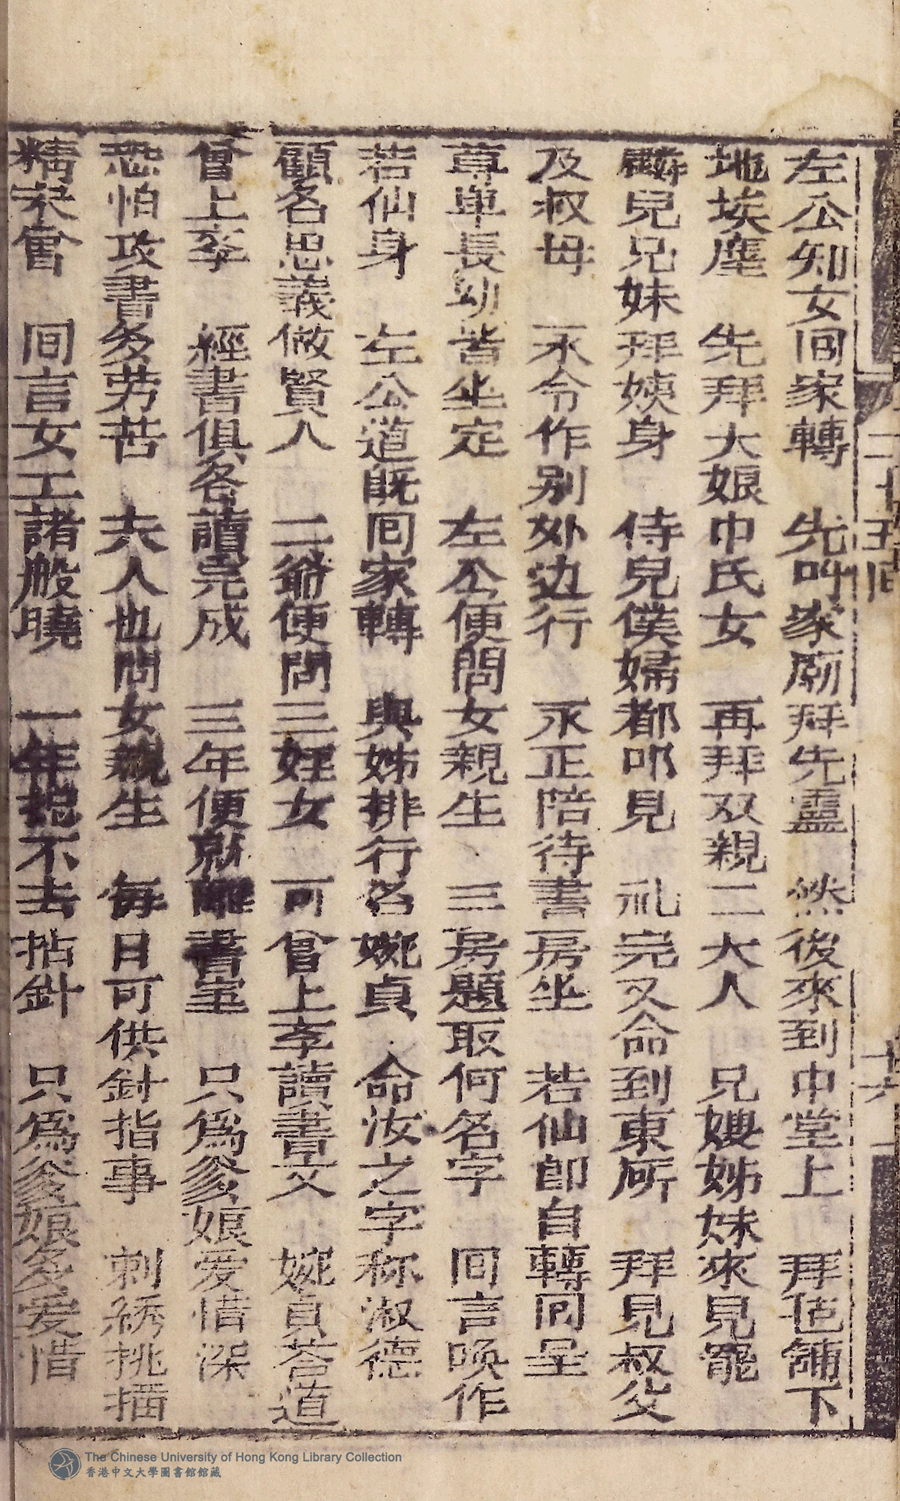 左公知女回家轉　先叫家廟拜先靈　然後來到中堂上　拜毡舖下
地埃塵　先拜大娘巾氏女　再拜双親二大人　兄嫂姊妹來見罷
麟兒兄妹拜姨身　侍兒僕婦都叩見　礼完又命到東所　拜見叔父
及叔母　永令作别外边行　永正陪待書房坐　若仙即自轉回呈
尊卑長幼皆坐定　左公便問女親生　三房題取何名字　回言唤作
若仙身　左公道既回家轉　與姊排行名婉貞　命汝之字称淑德
顧名思義做賢人　二爺便問三姪女　可曾上孛讀書文　婉貞荅道
曾上孛　經書俱各讀完成　三年便就離書室　只為爹娘爱惜深
恐怕攻書多劳苦　夫人也問女親生　每日可供針指事　刺綉挑描
精未曾　回言女工諸般曉　一年把不去拈針　只為爹娘多爱惜
二十五囘
十六
The Chinese University of Hong Kong Library Collection
香港中文大學圖書館館藏